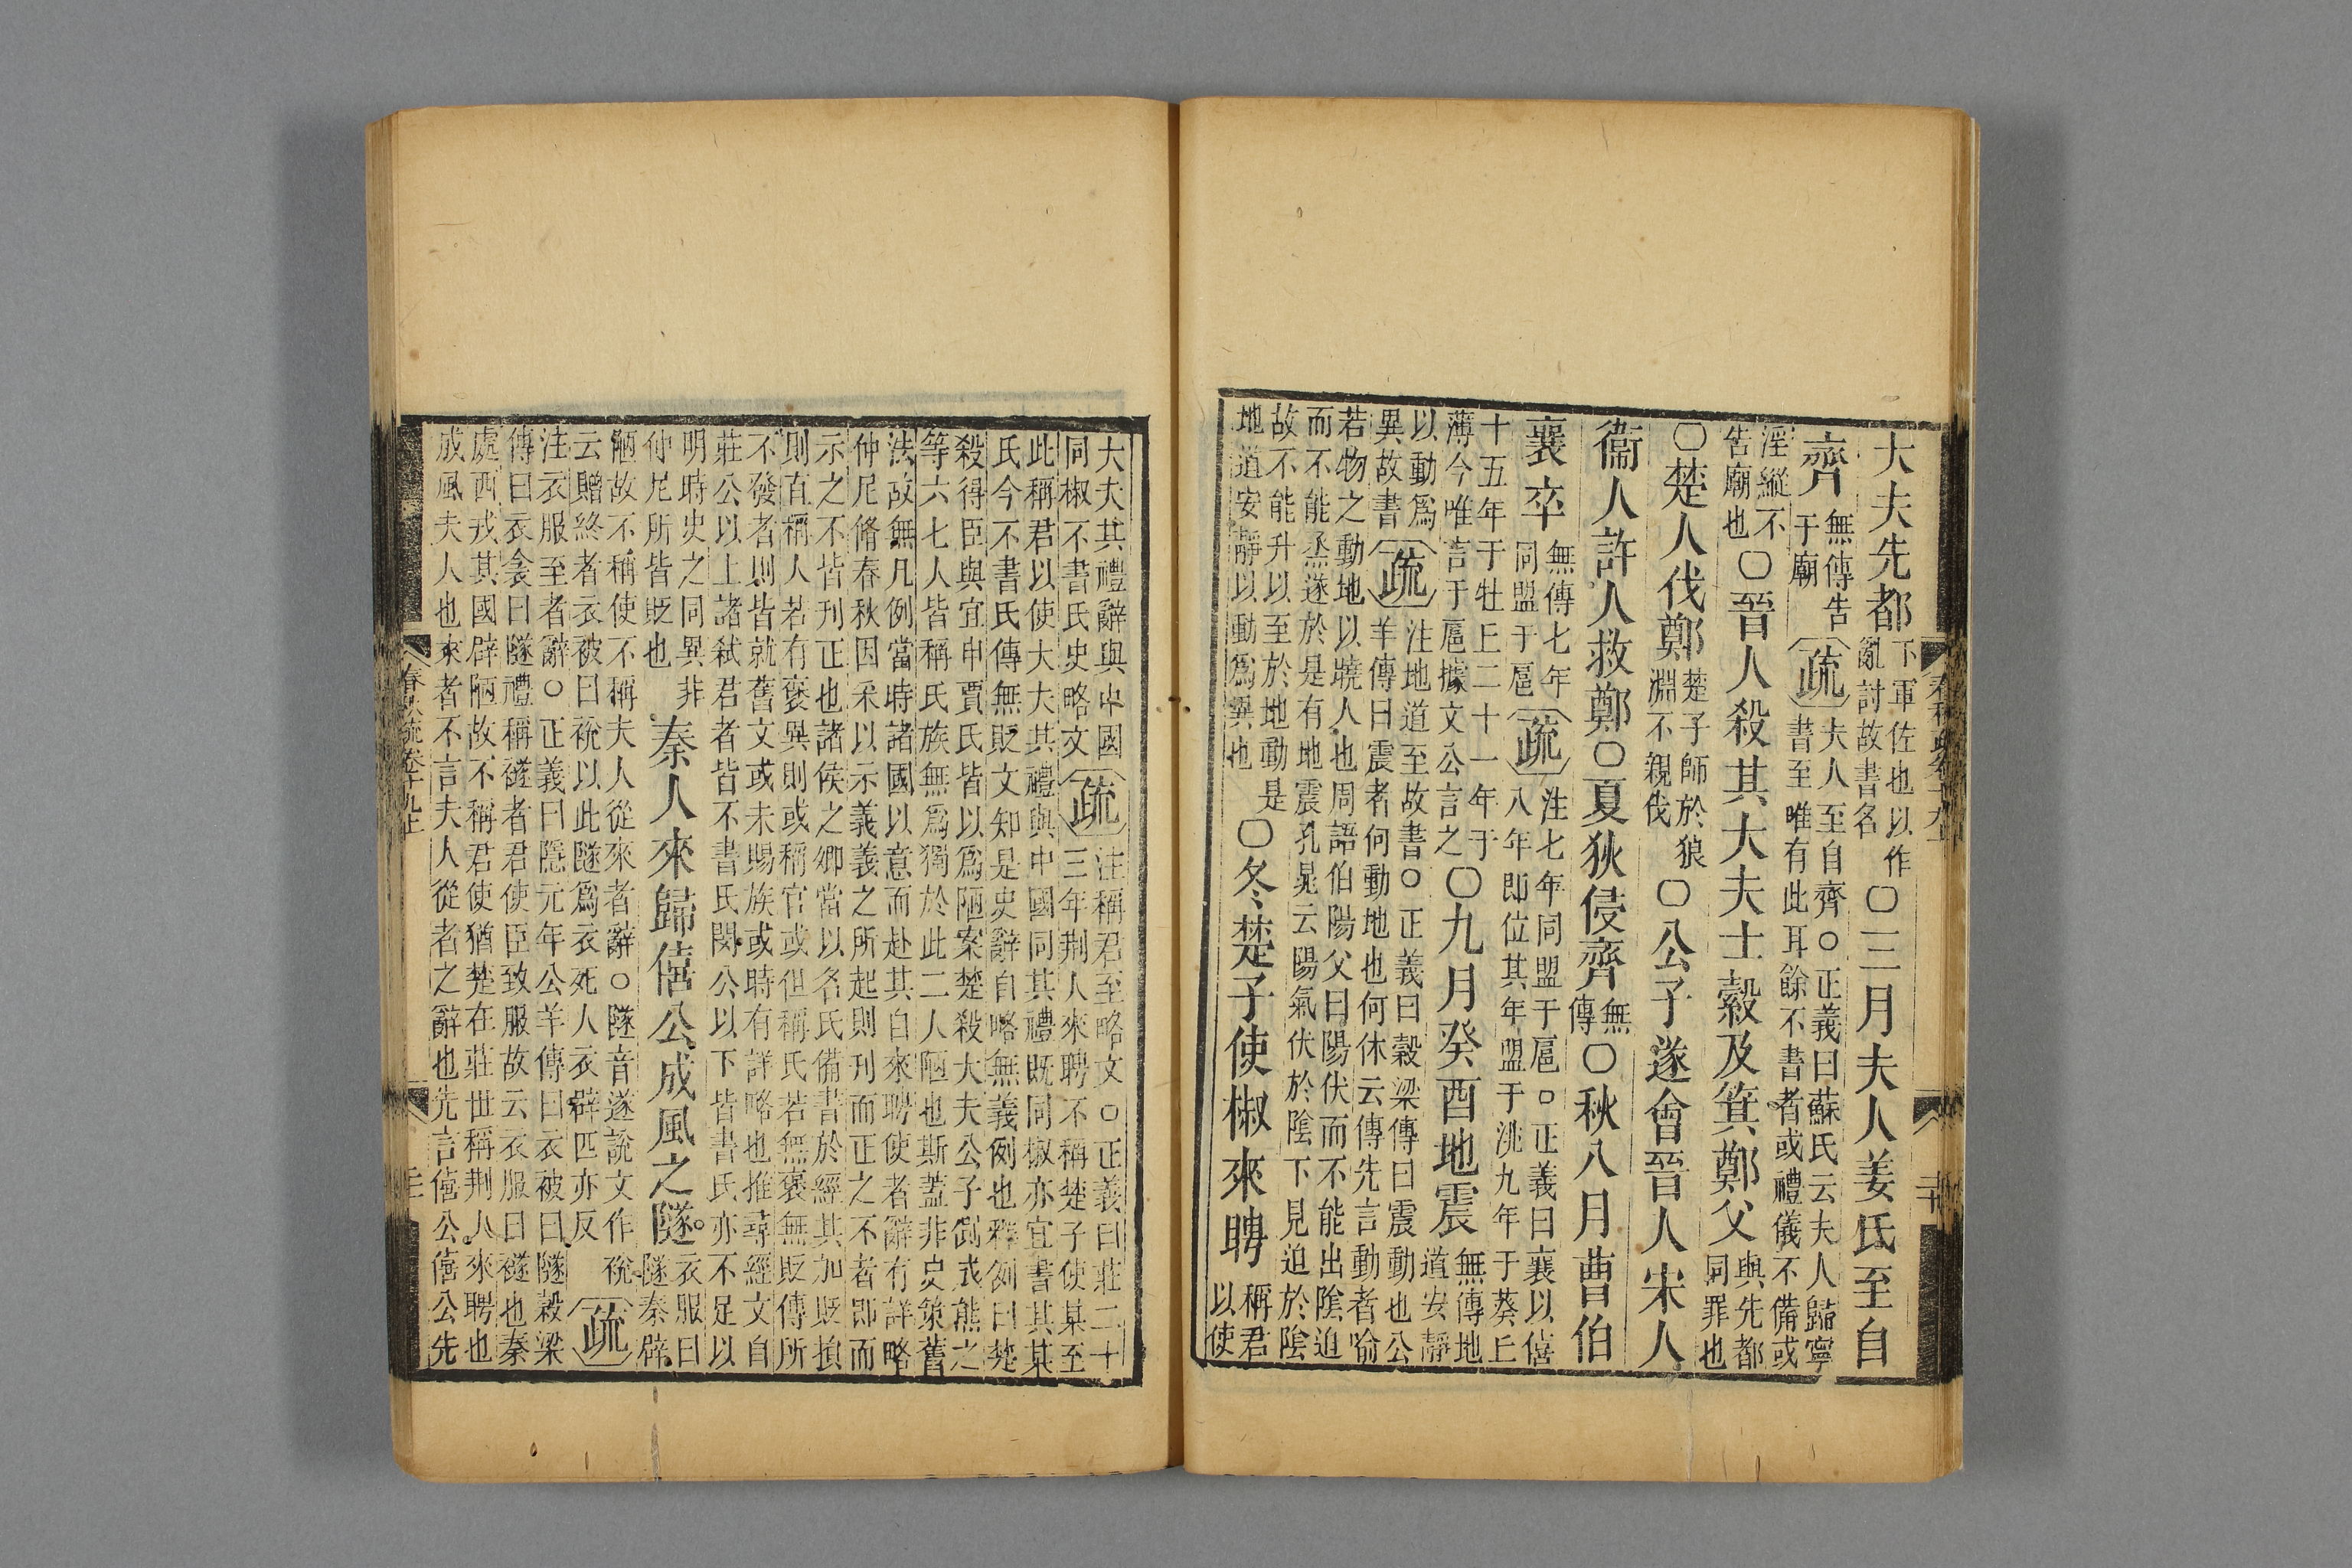 大夫先都下軍佐也以作亂討故書名〇三月夫人姜氏至自
齊無傳告于廟疏夫人至自齊○正義曰蘇氏云夫人歸寧書至唯有此耳餘不書者或禮儀不備或
淫縱不告廟也〇晉人殺其大夫士縠及箕鄭父與先都同罪也
〇楚人伐鄭楚子師於狼淵不親伐〇公子遂會晉人宋人
衞人許人救鄭〇夏狄侵齊無傳〇秋八月曹伯
襄卒無傳七年同盟于扈疏注七年同盟于扈○正義曰襄以僖八年即位其年盟于洮九年于葵丘
十五年于牡丘二十一年于薄今唯言于扈據文公言之〇九月癸酉地震無傳地道安靜
以動爲異故書疏注地道至故書○正義曰穀梁傳曰震動也公羊傳曰震者何動地也何休云傳先言動者喻
若物之動地以曉人也周語伯陽父曰陽伏而不能出陰迫而不能烝遂於是有地震孔晁云陽氣伏於陰下見迫於陰
故不能升以至於地動是地道安靜以動爲異也〇冬楚子使椒來聘稱君以使
大夫其禮辭與中國同椒不書氏史略文疏注稱君至略文○正義曰莊二十三年荆人來聘不稱楚子使某至
此稱君以使大夫其禮與中國同其禮既同椒亦宜書其某氏今不書氏傳無貶文知是史辭自略無義例也釋例曰楚
殺得臣與宜申賈氏皆以爲陋案楚殺大夫公子側成熊之等六七人皆稱氏族無爲獨於此二人陋也斯蓋非史策舊
法故無凡例當時諸國以意而赴其自來聘使者辭有詳略仲尼脩春秋因采以示義義之所起則刊而正之不者卽而
示之不皆刊正也諸侯之卿當以名氏備書於經其加貶損則直稱人若有襃異則或稱官或但稱氏若無襃無貶傳所
不發者則皆就舊文或未賜族或時有詳略也推尋經文自莊公以上諸弒君者皆不書氏閔公以下皆書氏亦不足以
明時史之同異非仲尼所皆貶也秦人來歸僖公成風之隧衣服曰隧秦辟
陋故不稱使不稱夫人從來者辭○隧音遂說文作裞云贈終者衣被曰裞以此隧爲衣死人衣辟匹亦反疏
注衣服至者辭○正義曰隱元年公羊傳曰衣被曰隧穀梁傳曰衣衾曰隧禮稱襚者君使臣致服故云衣服曰襚也秦
處西戎其國辟陋故不稱君使猶楚在莊世稱荆人來聘也成風夫人也來者不言夫人從者之辭也先言僖公僖公先